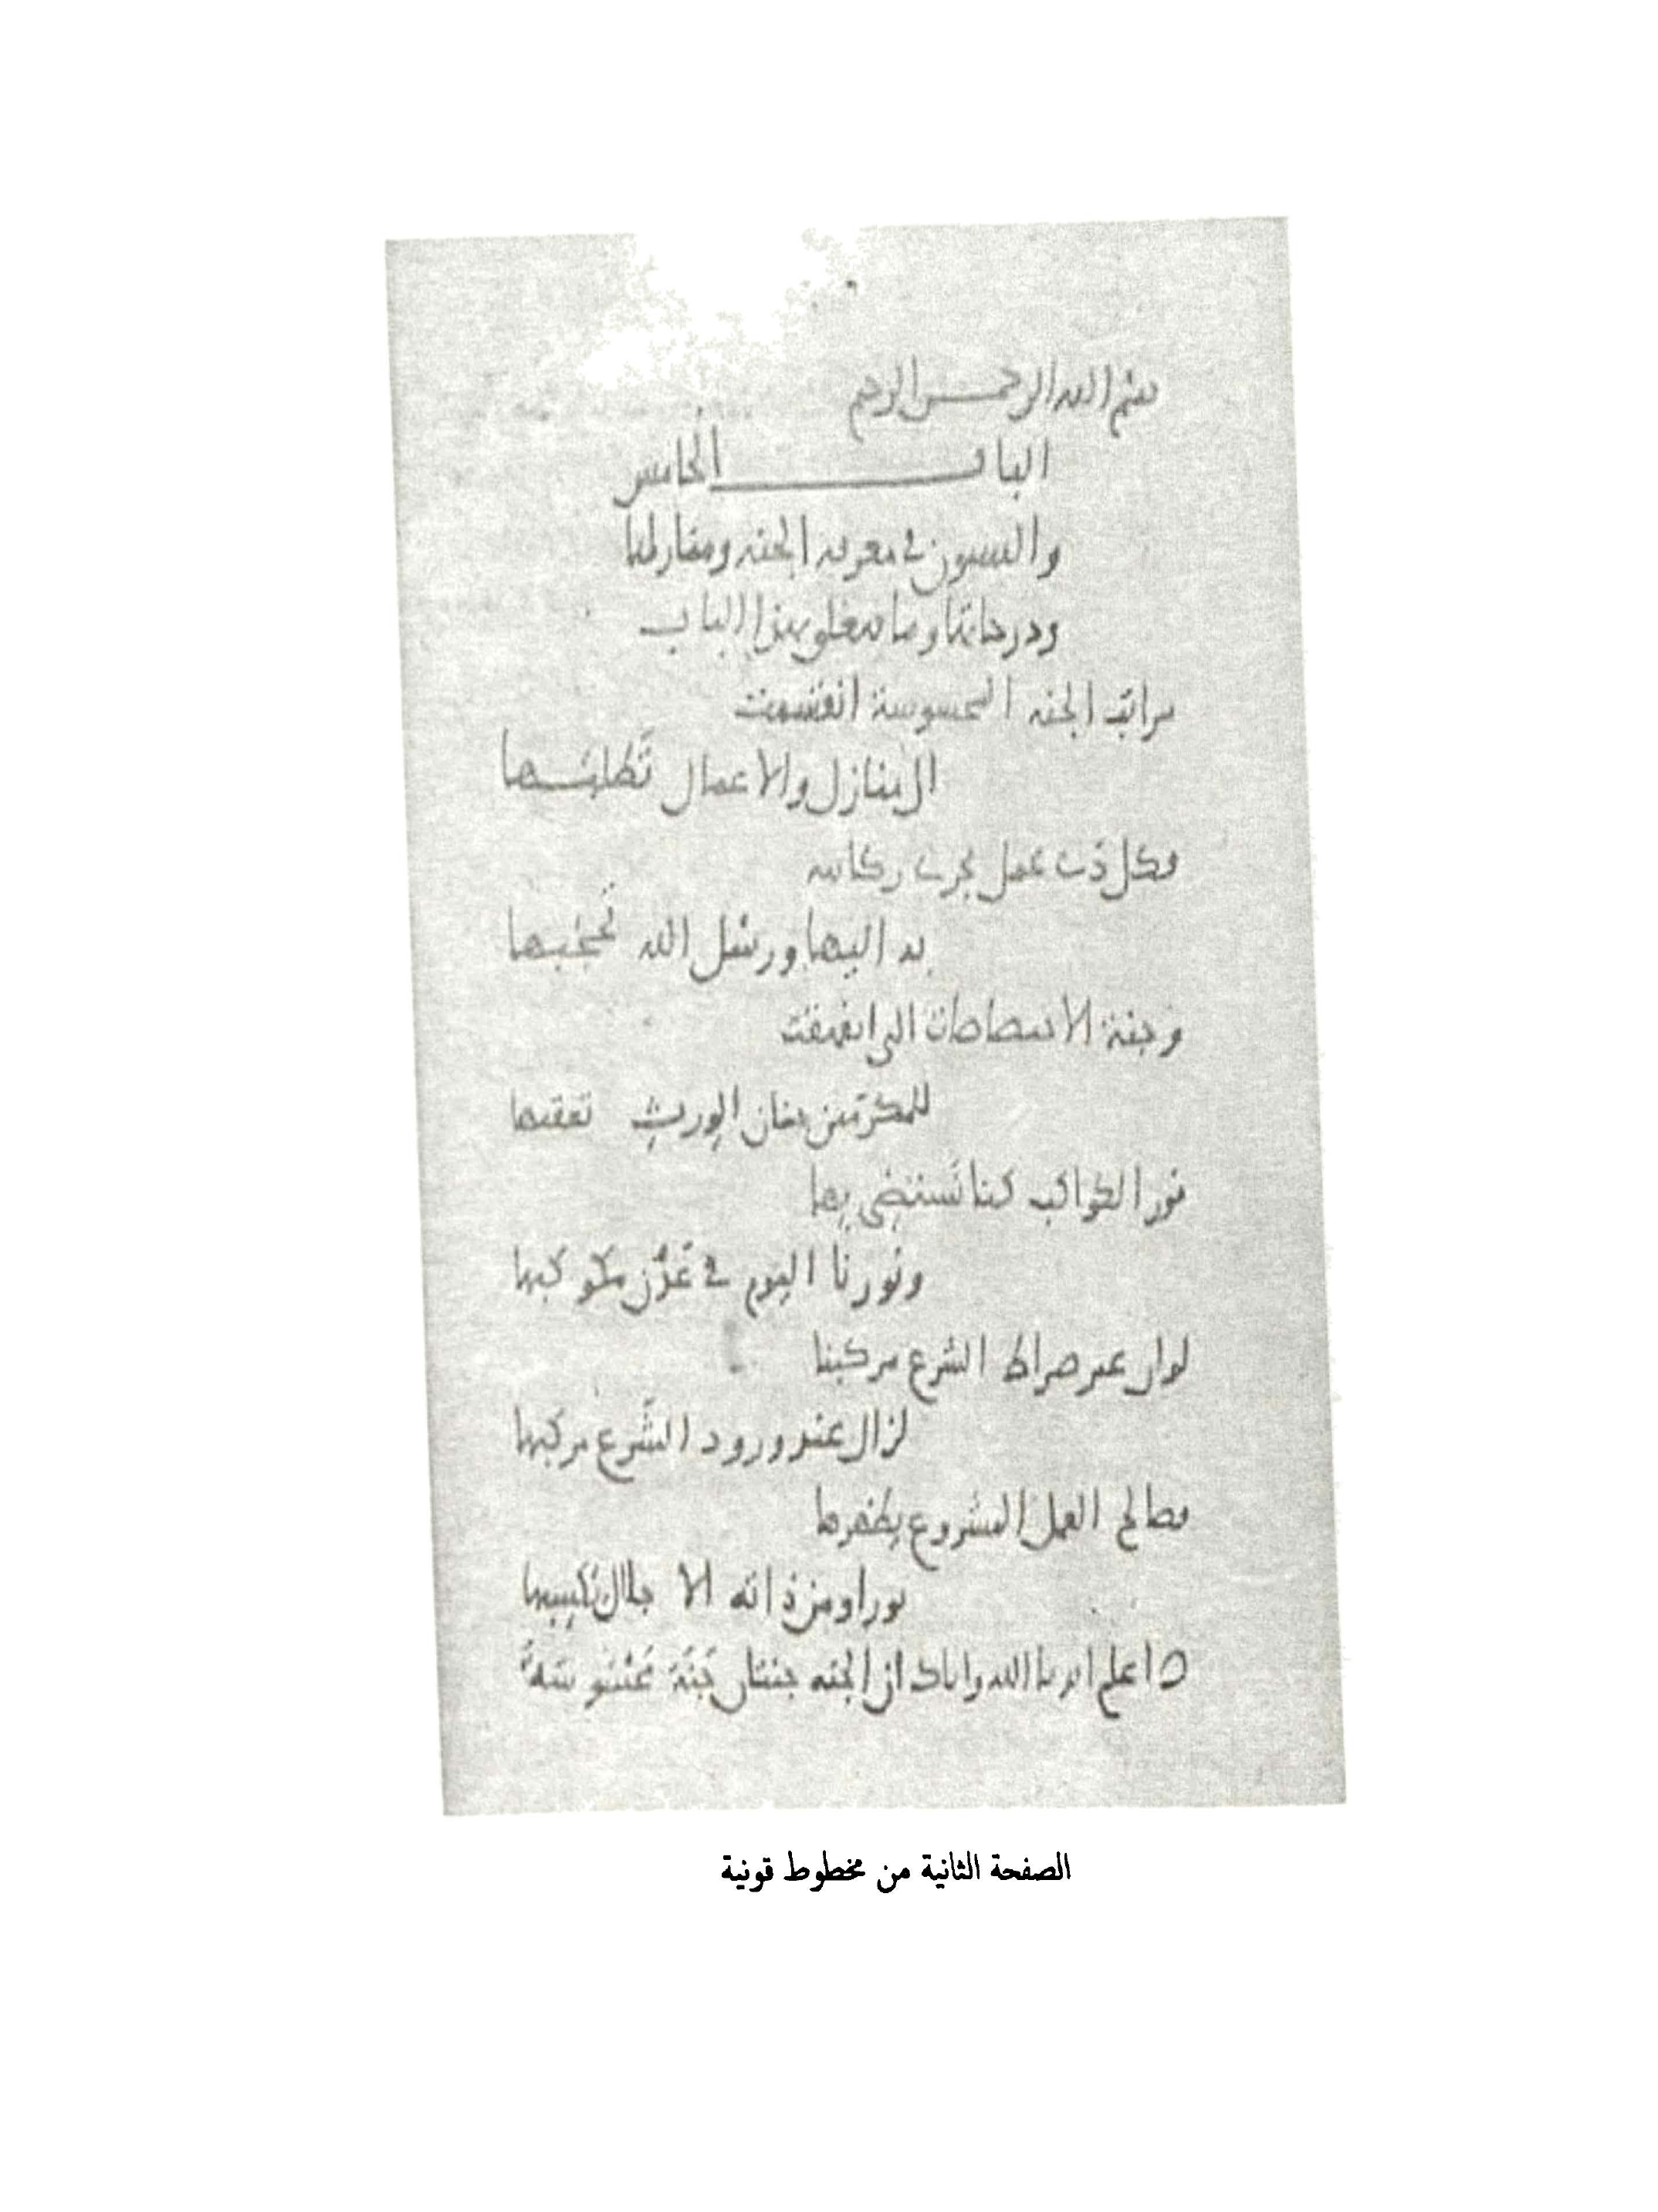 بسم الله الرحمن الرحيم
الباب الخامس
والستون في معرفة الجنة ومنازلها
ودرجاتها وما يتعلق بهذا الباب
مراتب الجنة المحسوسة انقسمت
الى منازل والاعمال تَطلبُها
وكل ذى عمل تجرى ركائبه
به اليها ورسل الله تحجبها
وجنة الاختصاصات التى انفهقت
للمكرمين جنان الورث تعقبها
نور الكواكب كنا نستضى بها
ونورنا اليوم فى عَدْن مكوكبها
لو ان غير صراط الشرع مركبنا
لزال عند ورود الشَّرع مركبها
فصالح العمل المشروع يظهرها
نورا ومن ذاته الاجلال يكسبها
ه اعلم ايدنا الله واياك ان الجنة جنتان جَنَّة محسوسة
الصفحة الثانية من مخطوط قونية